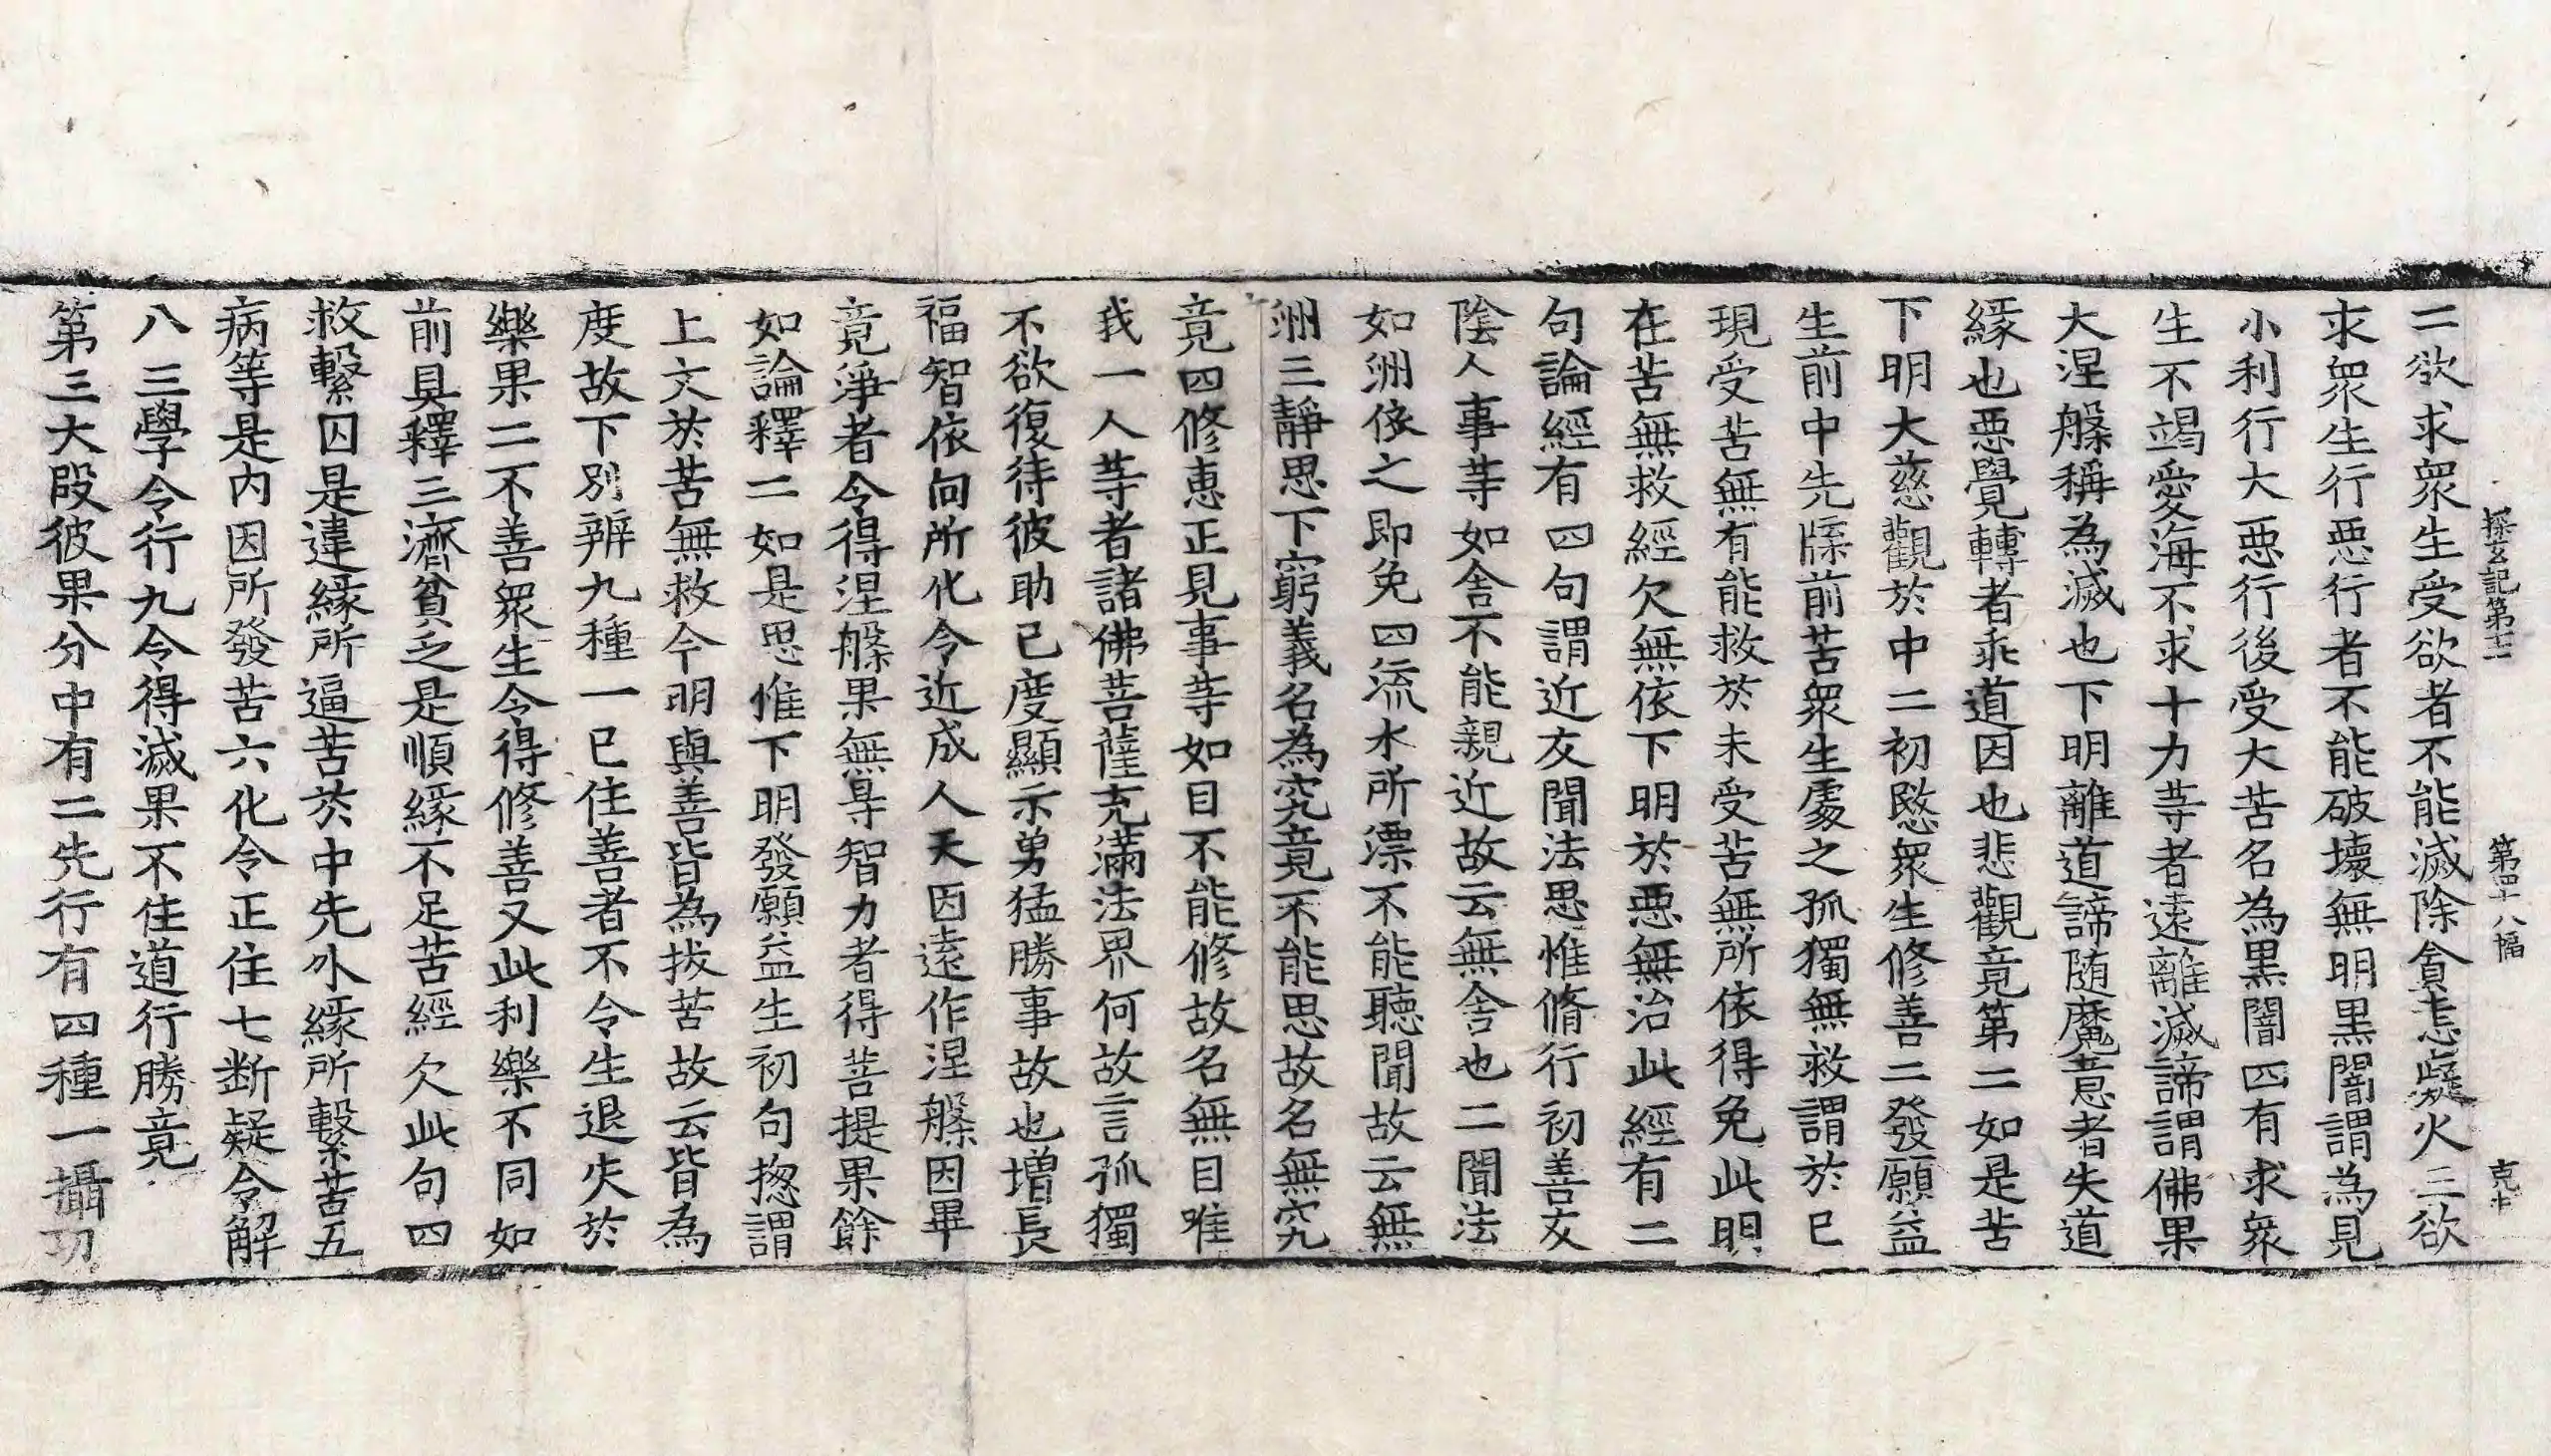 探玄記第十二　第四十八幅　克十
二欲求眾生受欲者不能滅除貪恚癡火三欲
求眾生行惡行者不能破壞無明黑闇謂為見
小利行大惡行後受大苦名為黑闇四有求眾
生不竭愛海不求十力等者遠離滅諦謂佛果
大涅槃稱為滅也下明離道諦随魔意者失道
緣也惡覺轉者乖道因也悲觀竟第二如是苦
下明大慈觀於中二初愍眾生修善二發願益
生前中先牒前苦眾生處之孤獨無救謂於已
現受苦無有能救於未受苦無所依得免此明
在苦無救經欠無依下明於惡無治此經有二
句論經有四句謂近友聞法思惟脩行初善友
陰人事等如舍不能親近故云無舍也二聞法
如洲依之即免四流水所漂不能聽聞故云無
洲三靜思下窮義名為究竟不能思故名無究
竟四修惠正見事等如目不能修故名無目唯
我一人等者諸佛菩薩充滿法界何故言孤獨
不欲復待彼助已度顯示勇猛勝事故也增長
福智依向所化令近成人天因遠作涅槃因畢
竟淨者令得涅槃果無㝵智力者得菩提果餘
如論釋二如是思惟下明發願益生初句揔謂
上文於苦無救今明與善皆為拔苦故云皆為
度故下別辨九種一已住善者不令生退失於
樂果二不善眾生令得修善又此利樂不同如
前具釋三濟貧乏是順緣不足苦經欠此句四
救繫囚是違緣所逼苦於中先外緣所繫苦五
病等是內因所發苦六化令正住七断疑令解
八三學令行九令得滅果不住道行勝竟
第三大段彼果分中有二先行有四種一攝功